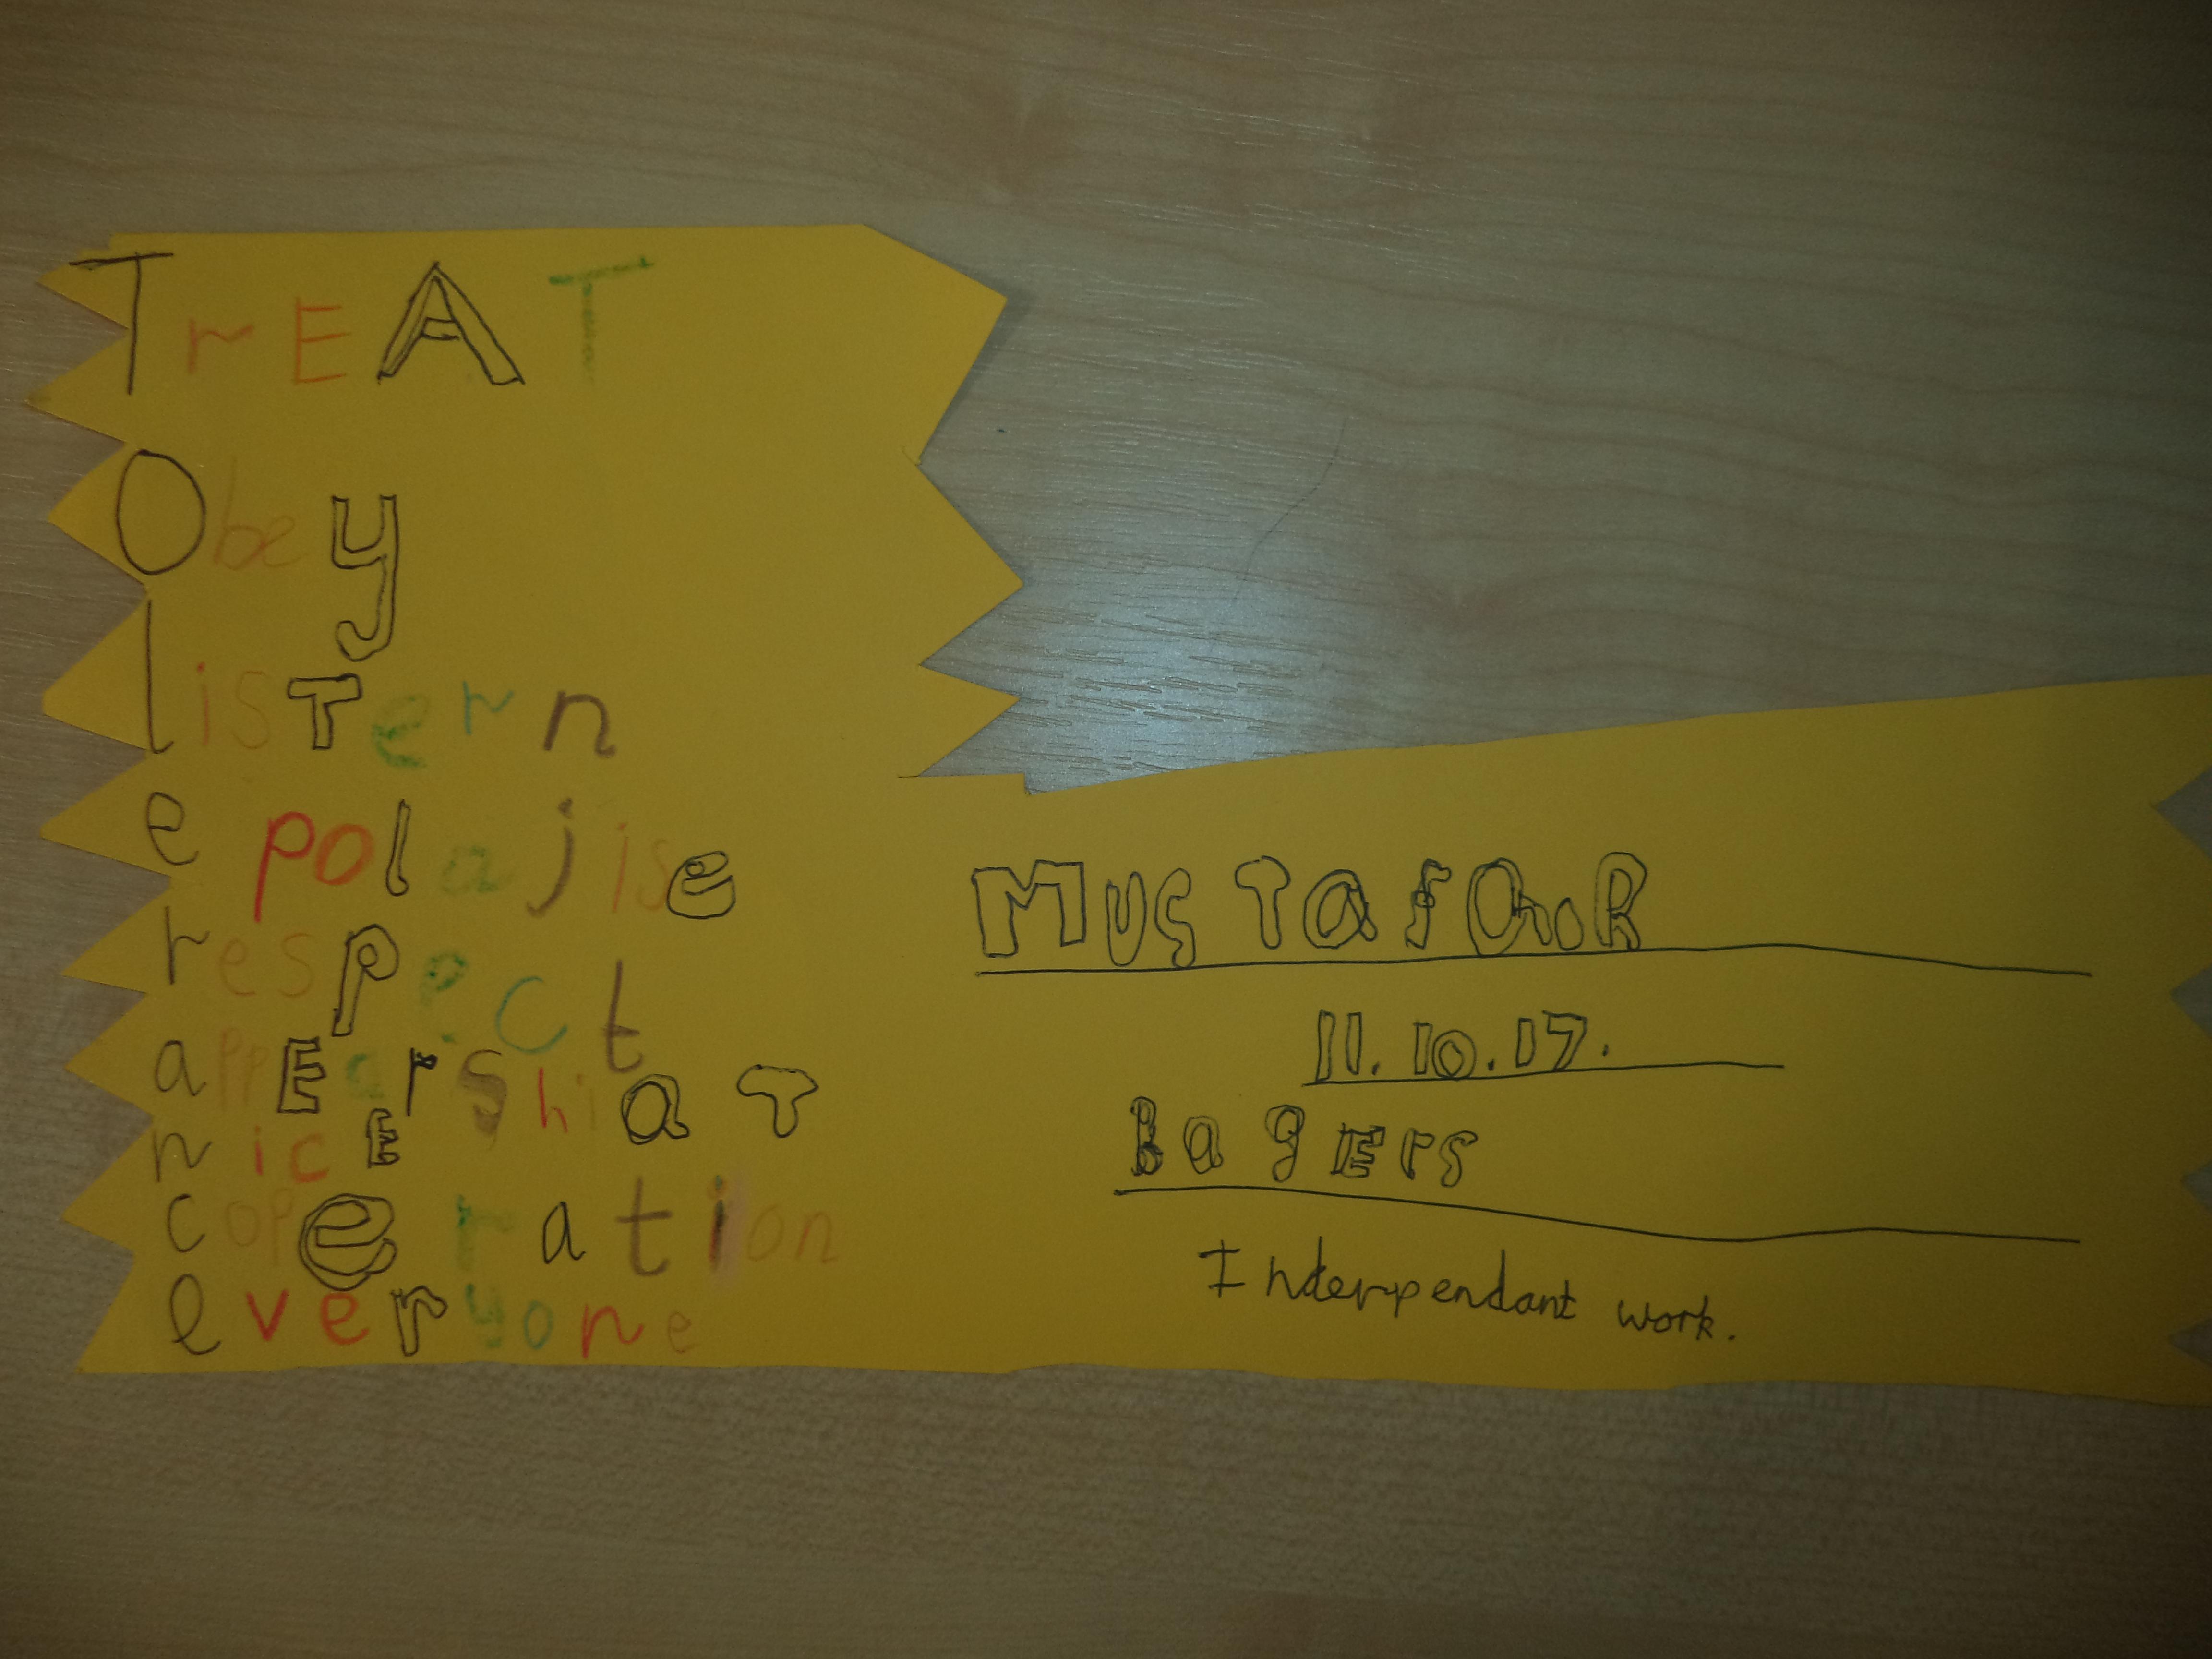 TrEAT
Obey
listern
e polajise
respect
appEarshiaT
nicE
coperation
everyone
MUSTafaR
11.10.17.
BagErs
Inderpendant work.